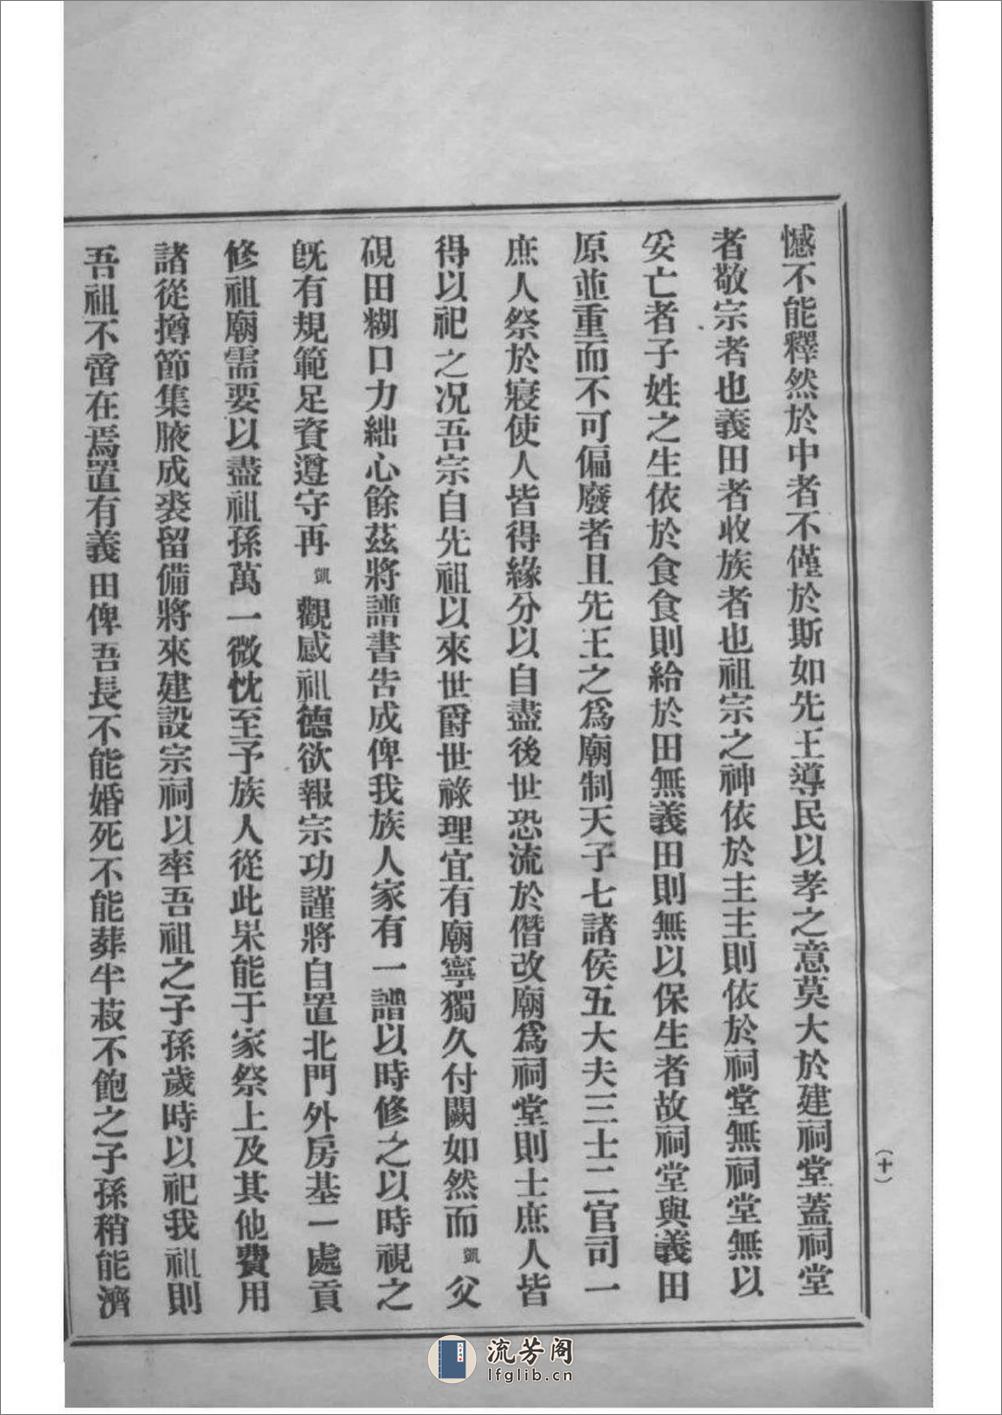 憾不能釋然於中者不僅於斯如先王導民以孝之意莫大於建祠堂蓋祠堂
者敬宗者也義田者收族者也祖宗之神依於主主則依於祠堂無祠堂無以
妥亡者子姓之生依於食食則給於田無義田則無以保生者故祠堂與義田
原並重而不可偏廢者且先王之爲廟制天子七諸侯五大夫三士二官司一
庶人祭於寢使人皆得緣分以自盡後世恐流於僭改廟爲祠堂則士庶人皆
得以祀之况吾宗自先祖以來世爵世祿理宜有廟寧獨久付闕如然而凱父
硯田糊口力絀心餘茲將譜書告成俾我族人家有一譜以時修之以時視之
旣有規範足資遵守再凱觀感祖德欲報宗功謹將自置北門外房基一處貢
修祖廟需要以盡祖孫萬一微忱至予族人從此杲能于家祭上及其他費用
諸從撙節集腋成裘留備將來建設宗祠以率吾祖之子孫歲時以祀我祖則
吾祖不啻在焉置有義田俾吾長不能婚死不能葬半菽不飽之子孫稍能濟
（十）
流芳阁
lfglib.cn